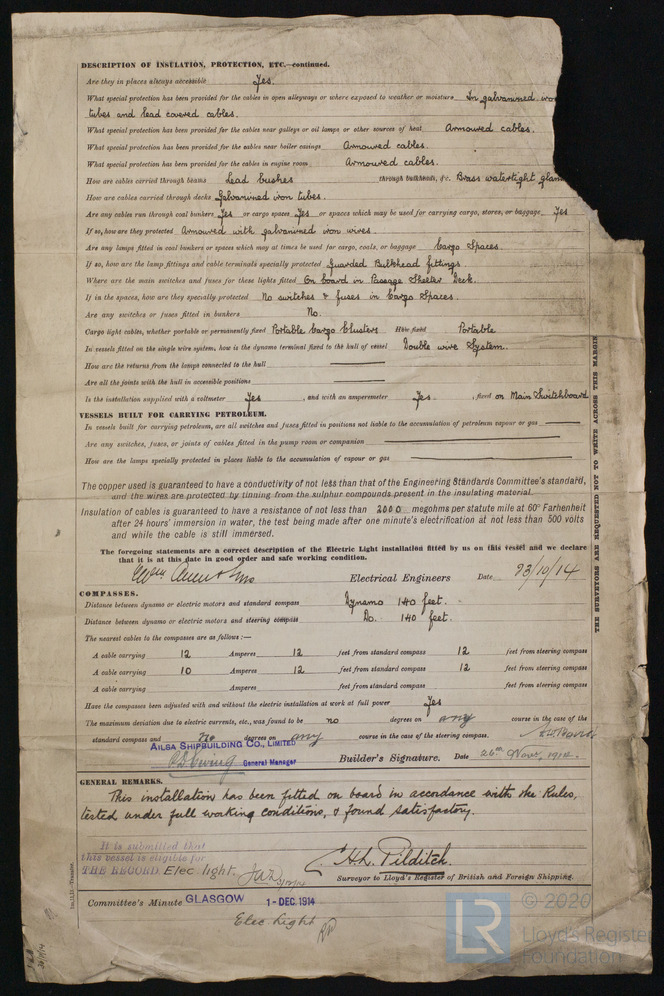 DESCRIPTION OF INSULATION, PROTECTION, ETC.—continued.
Are they in places always accessible Yes.
What special protection has been provided for the cables in open alleyways or where exposed to weather or moisture In galvanized iron
tubes and lead covered cables.
What special protection has been provided for the cables near galleys or oil lamps or other sources of heat Armoured cables.
What special protection has been provided for the cables near boiler casings Armoured cables.
What special protection has been provided for the cables in engine room Armoured cables.
How are cables carried through beams Lead bushes through bulkheads, &c. Brass watertight glan
How are cables carried through decks Galvanized iron tubes.
Are any cables run through coal bunkers Yes or cargo spaces Yes or spaces which may be used for carrying cargo, stores, or baggage Yes
If so, how are they protected Armoured with galvanized iron wires.
Are any lamps fitted in coal bunkers or spaces which may at times be used for cargo, coals, or baggage Cargo Spaces.
If so, how are the lamp fittings and cable terminals specially protected Guarded Bulkhead fittings
Where are the main switches and fuses for these lights fitted On board in Passage Shelter Deck.
If in the spaces, how are they specially protected No switches & fuses in Cargo Spaces.
Are any switches or fuses fitted in bunkers No.
Cargo light cables, whether portable or permanently fixed Portable Cargo Clusters How fixed Portable
In vessels fitted on the single wire system, how is the dynamo terminal fixed to the hull of vessel Double wire System.
How are the returns from the lamps connected to the hull
Are all the joints with the hull in accessible positions
Is the installation supplied with a voltmeter Yes , and with an amperemeter Yes , fixed on Main Switchboard
VESSELS BUILT FOR CARRYING PETROLEUM.
In vessels built for carrying petroleum, are all switches and fuses fitted in positions not liable to the accumulation of petroleum vapour or gas
Are any switches, fuses, or joints of cables fitted in the pump room or companion
How are the lamps specially protected in places liable to the accumulation of vapour or gas
The copper used is guaranteed to have a conductivity of not less than that of the Engineering Standards Committee's standard,
and the wires are protected by tinning from the sulphur compounds present in the insulating material.
Insulation of cables is guaranteed to have a resistance of not less than 2000 megohms per statute mile at 60° Farhenheit
after 24 hours' immersion in water, the test being made after one minute's electrification at not less than 500 volts
and while the cable is still immersed.
The foregoing statements are a correct description of the Electric Light installation fitted by us on this vessel and we declare
that it is at this date in good order and safe working condition.
Electrical Engineers Date 23/10/14
COMPASSES.
Distance between dynamo or electric motors and standard compass Dynamo 140 feet.
Distance between dynamo or electric motors and steering compass Do. 140 feet.
The nearest cables to the compasses are as follows:—
A cable carrying 12 Amperes 12 feet from standard compass 12 feet from steering compass
A cable carrying 10 Amperes 12 feet from standard compass 12 feet from steering compass
A cable carrying Amperes feet from standard compass feet from steering compass
Have the compasses been adjusted with and without the electric installation at work at full power Yes
The maximum deviation due to electric currents, etc., was found to be no degrees on any course in the case of the
standard compass and no degrees on any course in the case of the steering compass.
AILSA SHIPBUILDING CO., LIMITED
General Manager Builder's Signature. Date 26th Novr, 1914.
GENERAL REMARKS.
This installation has been fitted on board in accordance with the Rules,
tested under full working conditions, & found satisfactory.
It is submitted that
this vessel is eligible for
THE RECORD Elec. light.
H.L. Pilditch.
Surveyor to Lloyd's Register of British and Foreign Shipping.
Committee's Minute GLASGOW 1-DEC.1914
Elec Light
THE SURVEYORS ARE REQUESTED NOT TO WRITE ACROSS THIS MARGIN
LR
© 2020
Lloyd's Register
Foundation